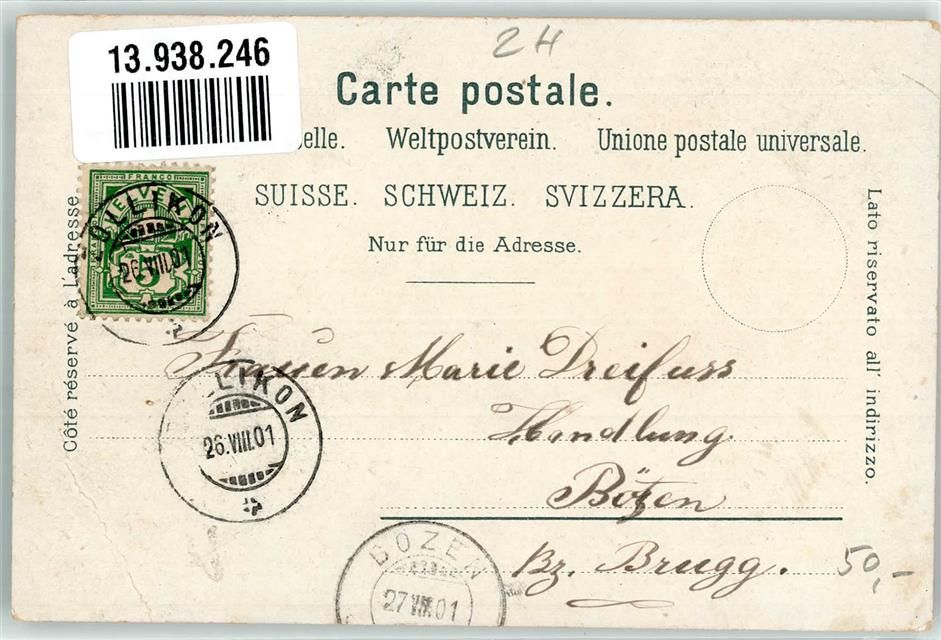 24
13.938.246
Carte postale.
elle. Weltpostverein. Unione postale universale.
SUISSE. SCHWEIZ. SVIZZERA.
Nur für die Adresse.
Côté réservé à l'adresse
Lato riservato all' indirizzo.
FRANCO
HELVETIA
5
OLLIKON
26.VIII.01
Frauen Marie Dreifuss
LIKON
26.VIII.01
Handlung
Bötzen
Bz. Brugg.
50,-
BOZEN
27 VIII 01